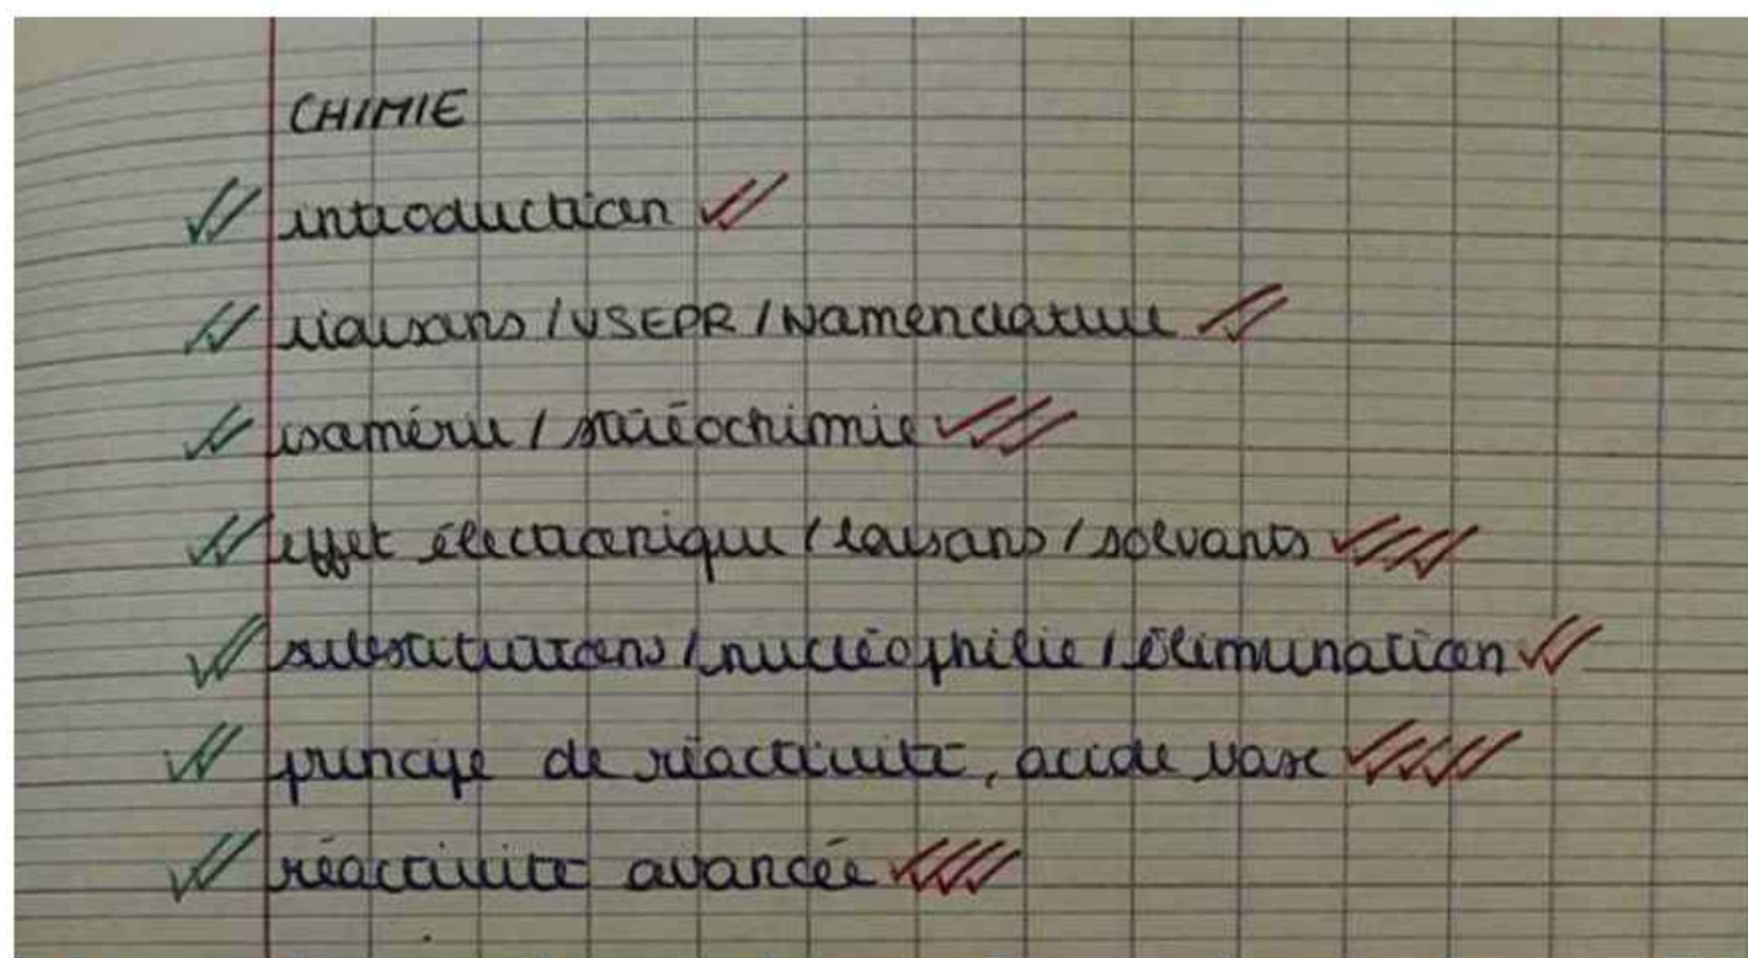 CHIMIE
introduction
liaisons / VSEPR / Nomenclature
isomérie / stéréochimie
effet électronique / laisons / solvants
substitutions / nucléophilie / élimination
principe de réactivité, acide base
réactivité avancée